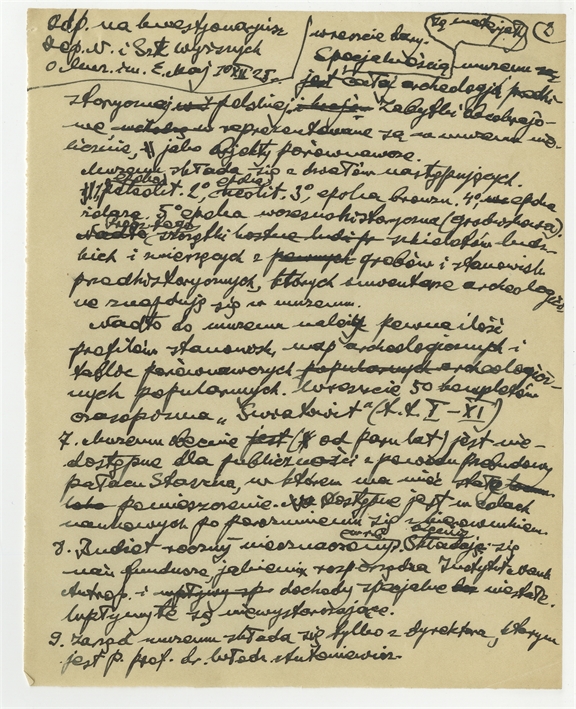 Odp. na kwestjonarjusz
Dep. N. i Szk. wyższych
o Muz. im. E. Maj. 20 XII 28 r.
wreszcie dary.
są materjały
2
Specjalnością muzeum są
jest całej archeologji przedhi-
storycznej polskiej. Zabytki obcokrajo-
we, reprezentowane są w muzeum nie-
licznie, jako objekty porównawcze.
Muzeum składa się z działów następujących.
1) epoka paleolit. 2° epoka neolit. 3° epoka bronzu. 4° epoka
żelaza. 5° epoka wczesnohistoryczna (grodziskowa).
szczątki kostne szkieletów ludz-
kich i zwierzęcych z pewnych grobów i stanowisk
przedhistorycznych, których inwentarze archeologiczne
znajdują się w muzeum.
Nadto do muzeum należy pewna ilość
profilów stanowisk, map archeologicznych i
tablic porównawczych popularnych archeologicz-
nych popularnych. Wreszcie 50 kompletów
czasopisma "Światowit" (t. t. V – XI)
7. Muzeum obecnie jest (od paru lat) jest nie-
dostępne dla publiczności z powodu przebudowy
pałacu Staszica, w którem ma mieć
pomieszczenie. Dostępne jest w celach
naukowych po porozumieniu się z kierownikiem.
8. Budżet roczny nieoznaczony. Składają się
nań fundusze, jakiemi rozporządza Instytut Nauk
Antrop. i dochody specjalne niestałe.
Wpływy te są niewystarczające.
9. Zarząd muzeum składa się tylko z dyrektora, którym
jest p. prof. dr. Włodz. Antoniewicz.